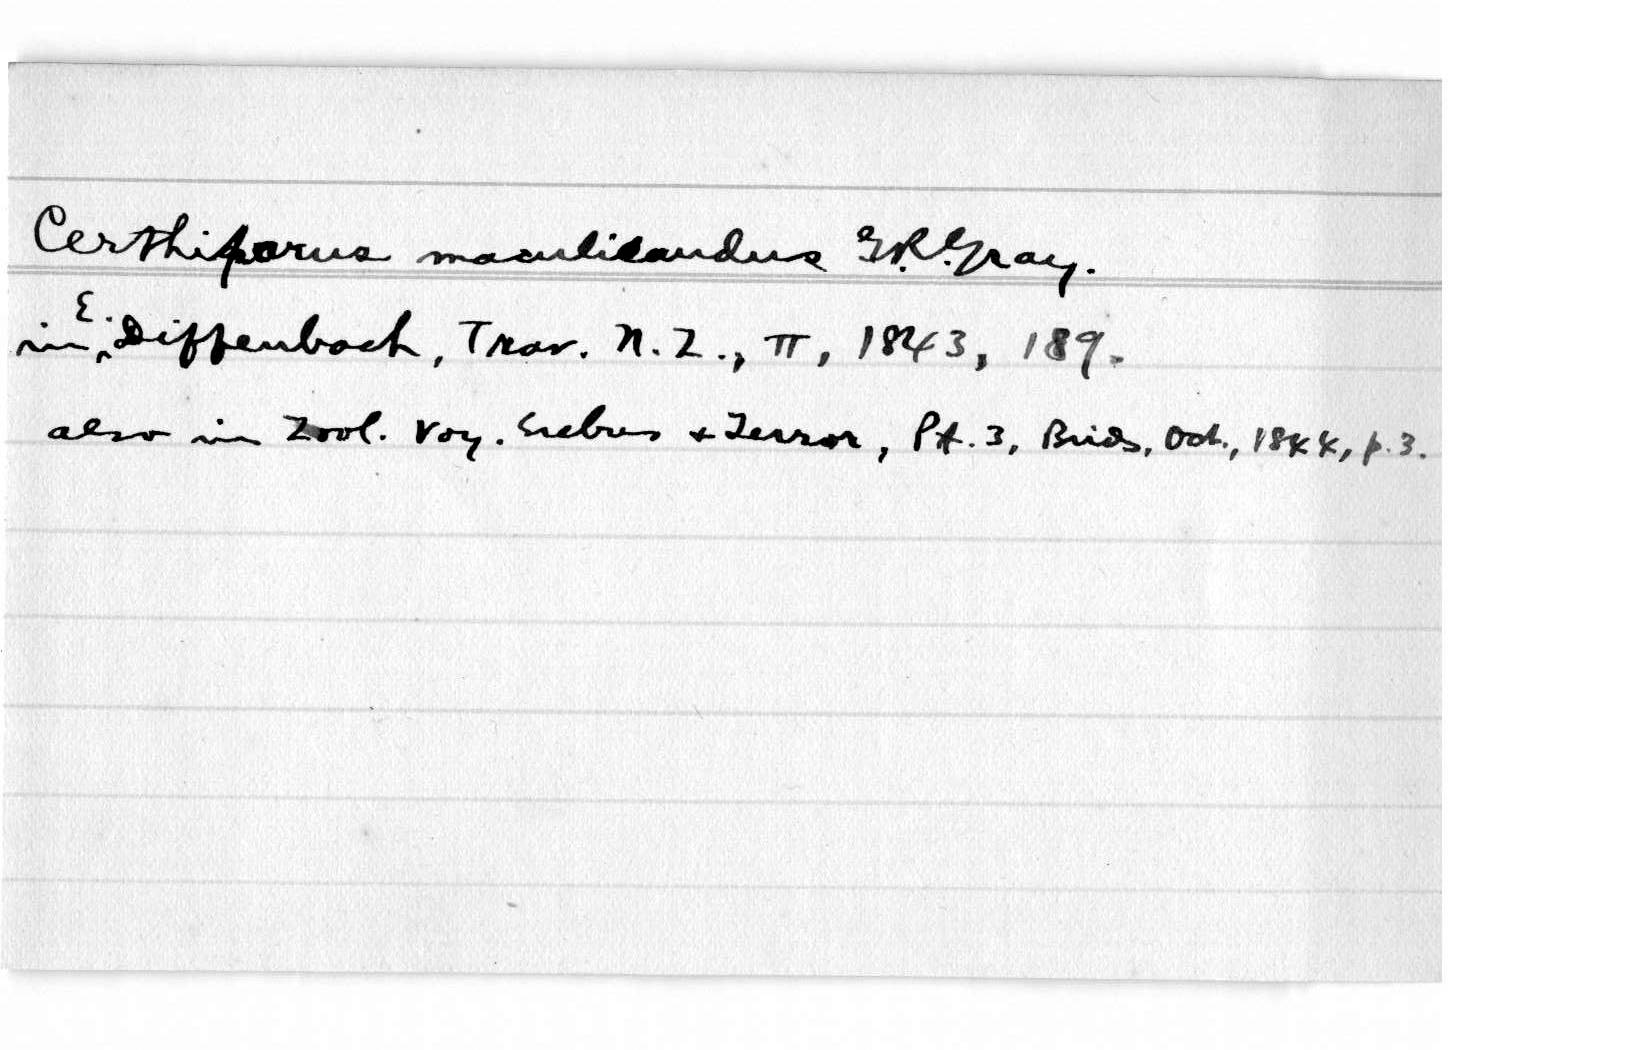 Certhiparus maculicaudus G.R. Gray.
in E. Diffenbach, Trav. N.Z., II, 1843, 189.
also in Zool. Voy. Erebus + Terror, Pt. 3, Birds, Oct., 1844, p. 3.